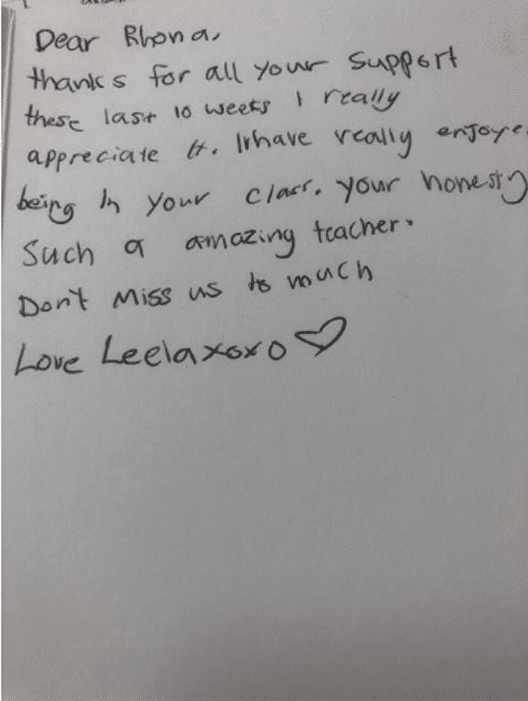 Dear Rhona,
thanks for all your support
these last 10 weeks I really
appreciate it. I have really enjoye
being in your class. your honesty
Such a amazing teacher.
Don't Miss us to much
Love Leela xoxo ♡